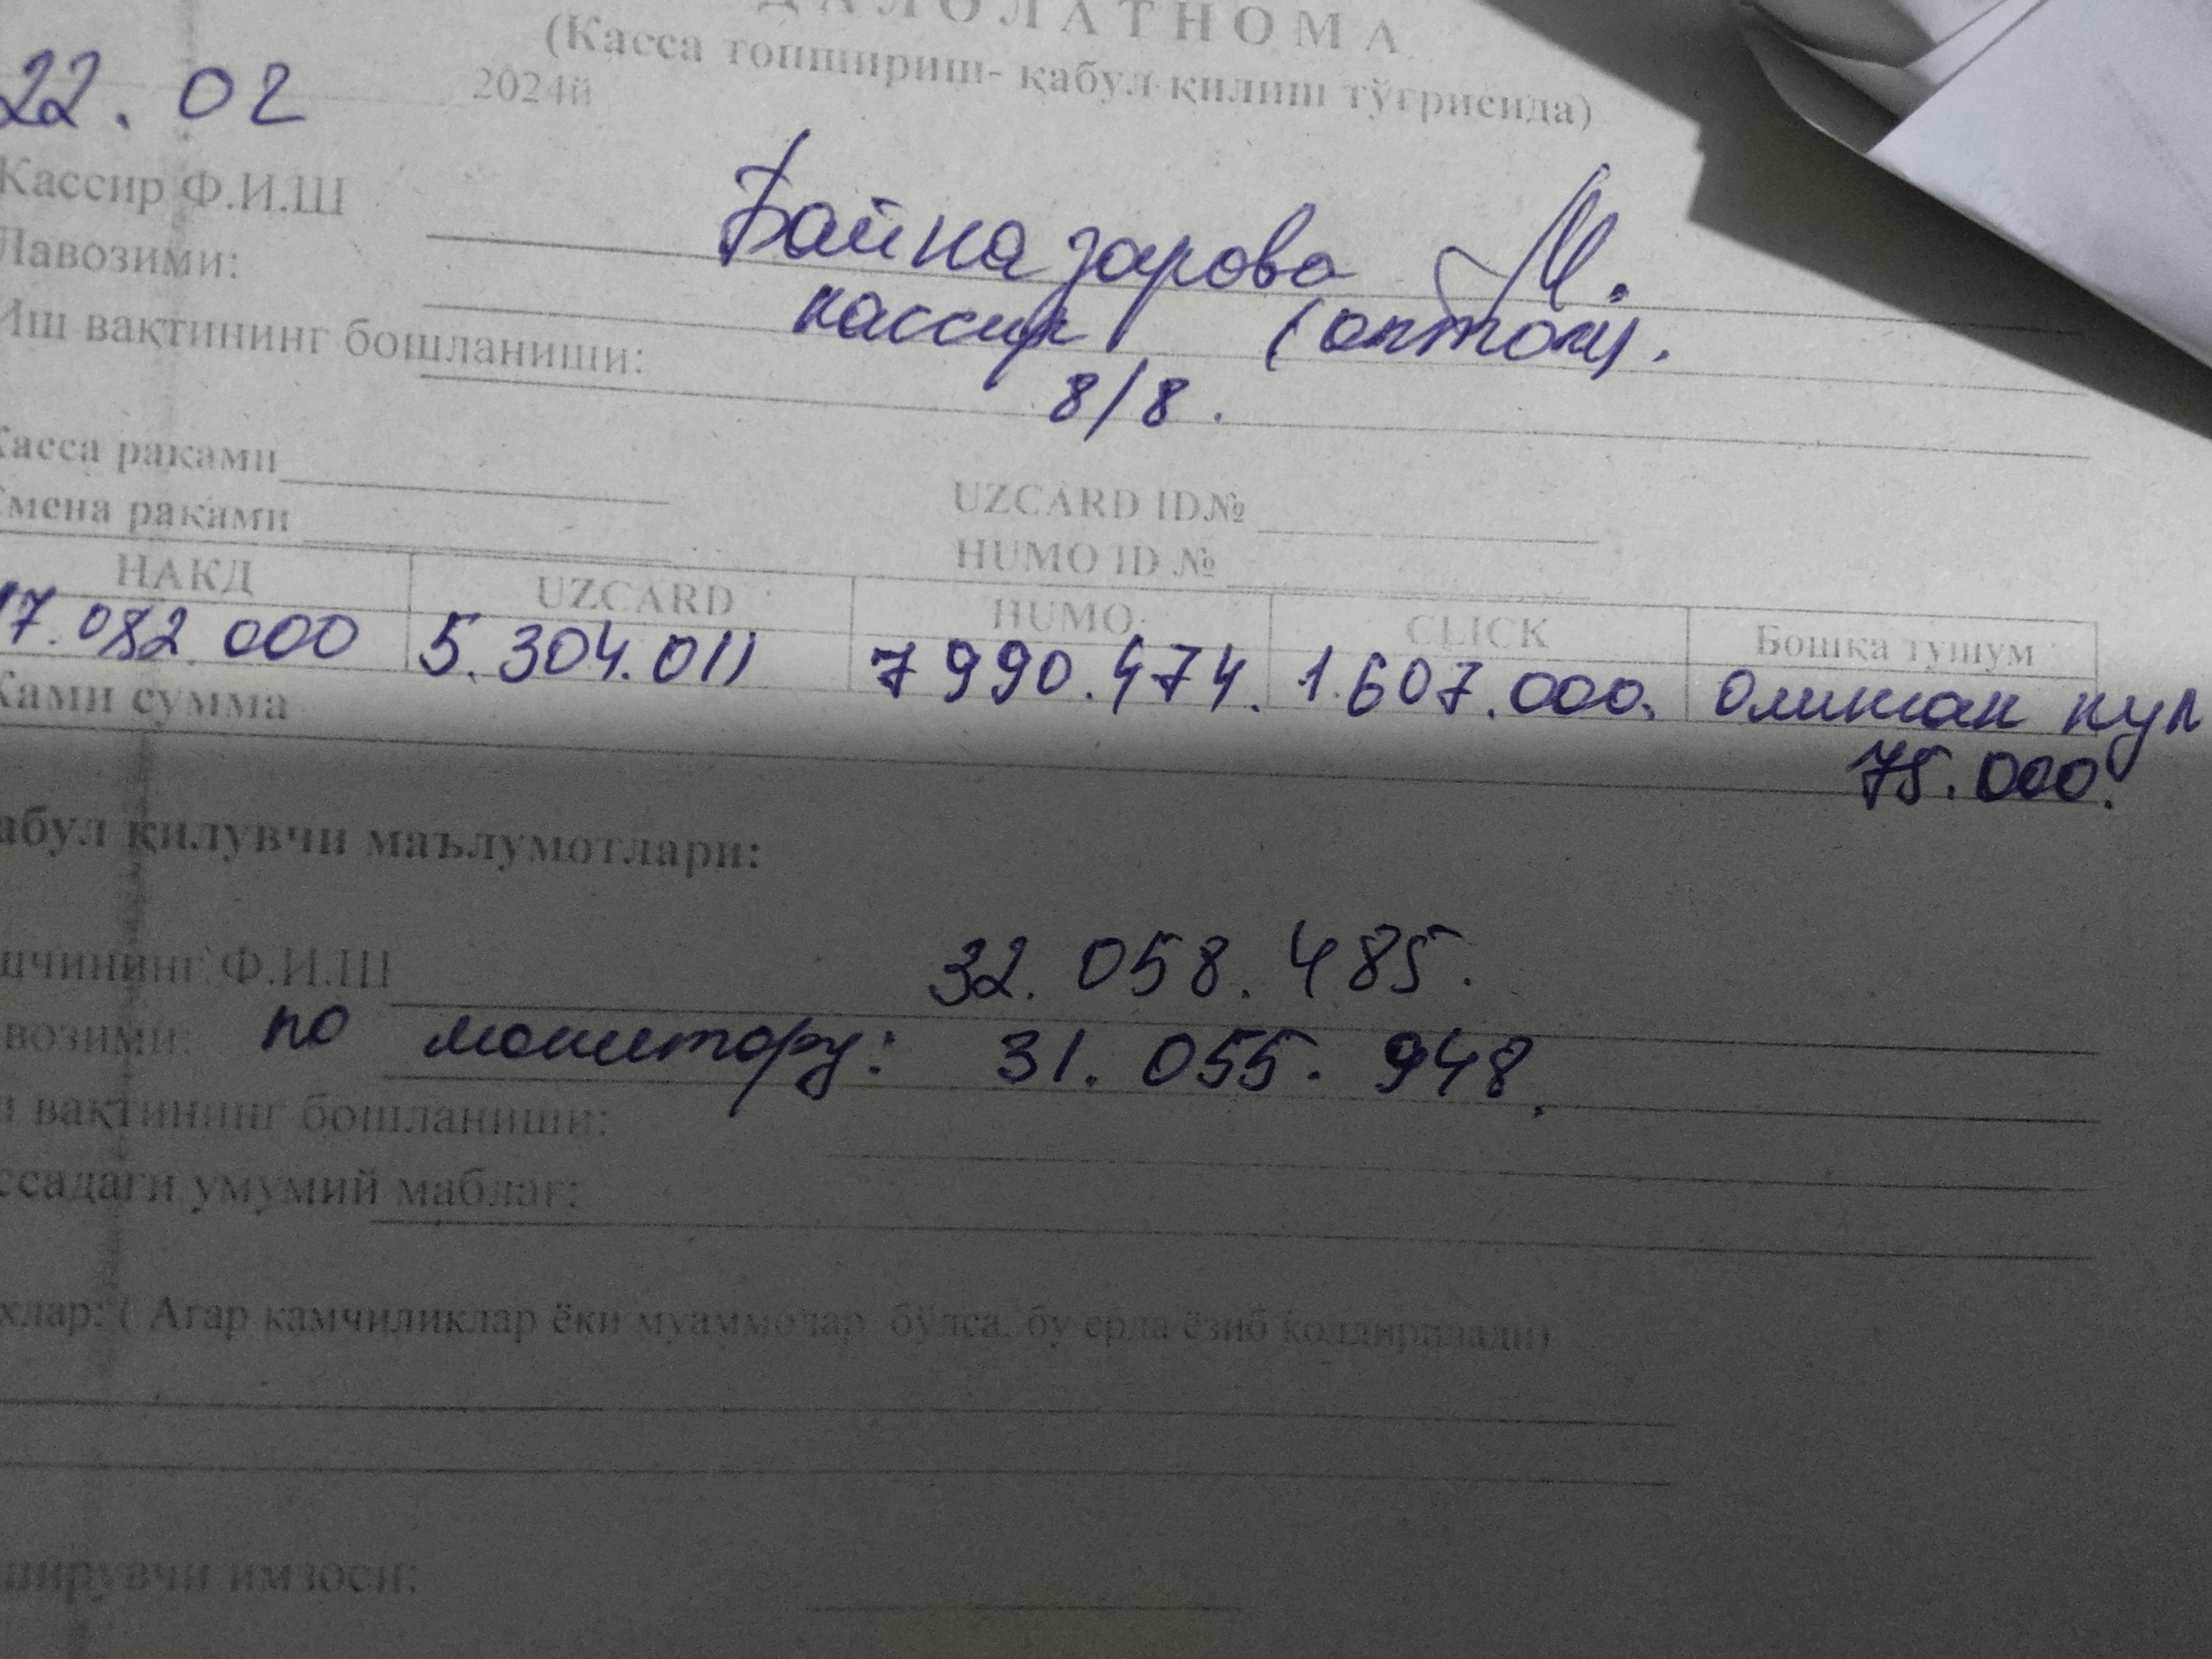 ДАЛОЛАТНОМА
(Касса топшириш- қабул қилиш тўғрисида)
22.02 2024й
Кассир Ф.И.Ш Байназарова М.
Лавозими: кассир (оптом).
Иш вақтининг бошланиши: 8/8.
Касса раками
Смена раками UZCARD ID№
HUMO ID №
НАКД UZCARD HUMO CLICK Бошка тушум
17.082.000 5.304.011 7 990.474. 1.607.000. Олинган пул
Ками сумма 75.000.
абул қилувчи маълумотлари:
шчининг Ф.И.Ш 32.058.485.
возими: по монитору: 31.055.948.
вақтининг бошланиши:
ссадаги умумий маблағ:
хлар: ( Агар камчиликлар ёки муаммолар бўлса, бу ерда ёзиб колдирилади)
имзоси: